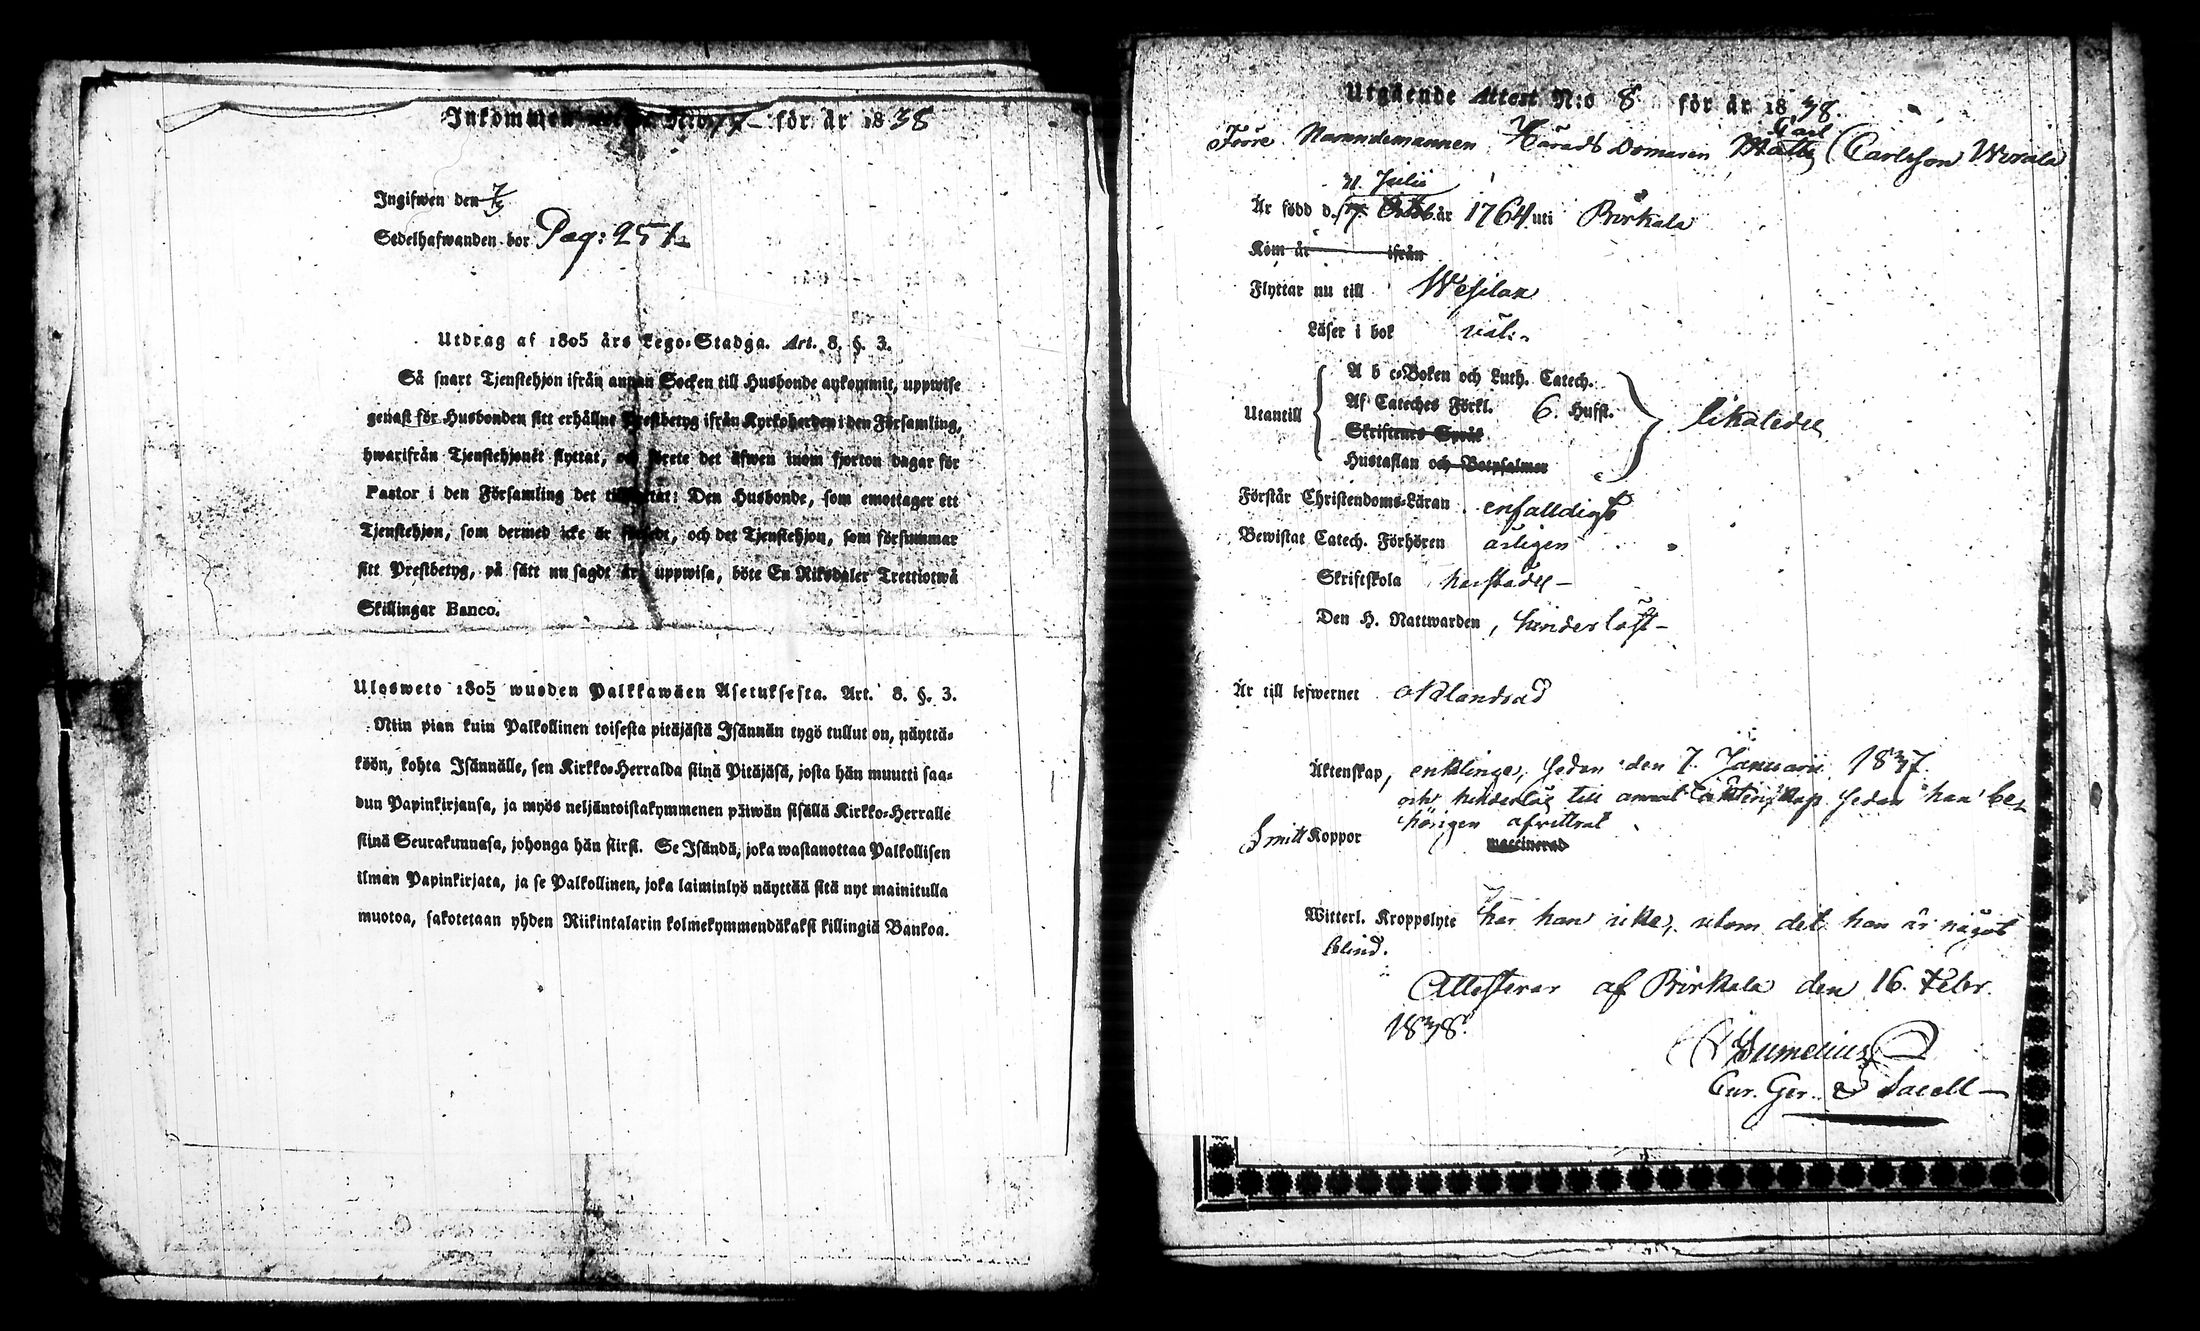 Inkommen N:o 77 för år 1838
Ingifwen den 7/3
Sedelhafwanden bor Pag: 251
Utdrag af 1805 års Lego-Stadga. Art. 8. §. 3.
Så snart Tjenstehjon ifrån annan Socken till Husbonde ankommit, uppwise
genast för Husbonden sitt erhållne Prestbetyg ifrån Kyrkoherden i den Församling,
hwarifrån Tjenstehjonet flyttat, och förete det äfwen inom fjorton dagar för
Pastor i den Församling det tillflyttat: Den Husbonde, som emottager ett
Tjenstehjon, som dermed icke är försedt, och det Tjenstehjon, som försummar
sitt Prestbetyg, på sätt nu sagdt är, uppwisa, böte En Riksdaler Trettiotwå
Skillingar Banco.
Ulosweto 1805 wuoden Palkkawäen Asetuksesta. Art. 8. §. 3.
Niin pian kuin Palkollinen toisesta pitäjästä Isännän tygö tullut on, näyttä-
köön, kohta Isännälle, sen Kirkko-Herralda siinä Pitäjäsä, josta hän muutti saa-
dun Papinkirjansa, ja myös neljäntoistakymmenen päiwän sisällä Kirkko-Herralle
siinä Seurakunnasa, johonga hän siirsi. Se Isändä, joka wastanottaa Palkollisen
ilman Papinkirjata, ja se Palkollinen, joka laiminlyö näyttää sitä nyt mainitulla
muotoa, sakotetaan yhden Riikintalarin kolmekymmendäkaksi killingiä Bankoa.
Utgående Attest N:o 8 för år 1838.
Carl
Förre Nämndemannen Härads Domaren Matts Carlsson
31. Julii
Är född d. 17. Octob. år 1764 uti Birkala
Kom år ifrån
Flyttar nu till Wesilax
Läser i bok väl.
A b c-Boken och Luth. Catech.
Utantill Af Cateches Förkl. 6. Hufst. likaledes
Skriftenes Språk
Hustaflan och Botpsalmer
Förstår Christendoms-Läran enfalldigt
Bewistat Catech. Förhören årligen
Skriftskola
Den H. Nattwarden, hinderlöst
Är till lefwernet oklandrad
Äktenskap, enkling, sedan den 7. Januarii 1837.
och hinderlös till annat äktenskap sedan han be-
hörigen afvittrat
Smitt Koppor
vaccinerad
Witterl. Kroppslyte har han icke, utom det han är något
blind.
Attesterar af Birkala den 16. Febr.
1838.
Cur. Ger. & Sacell